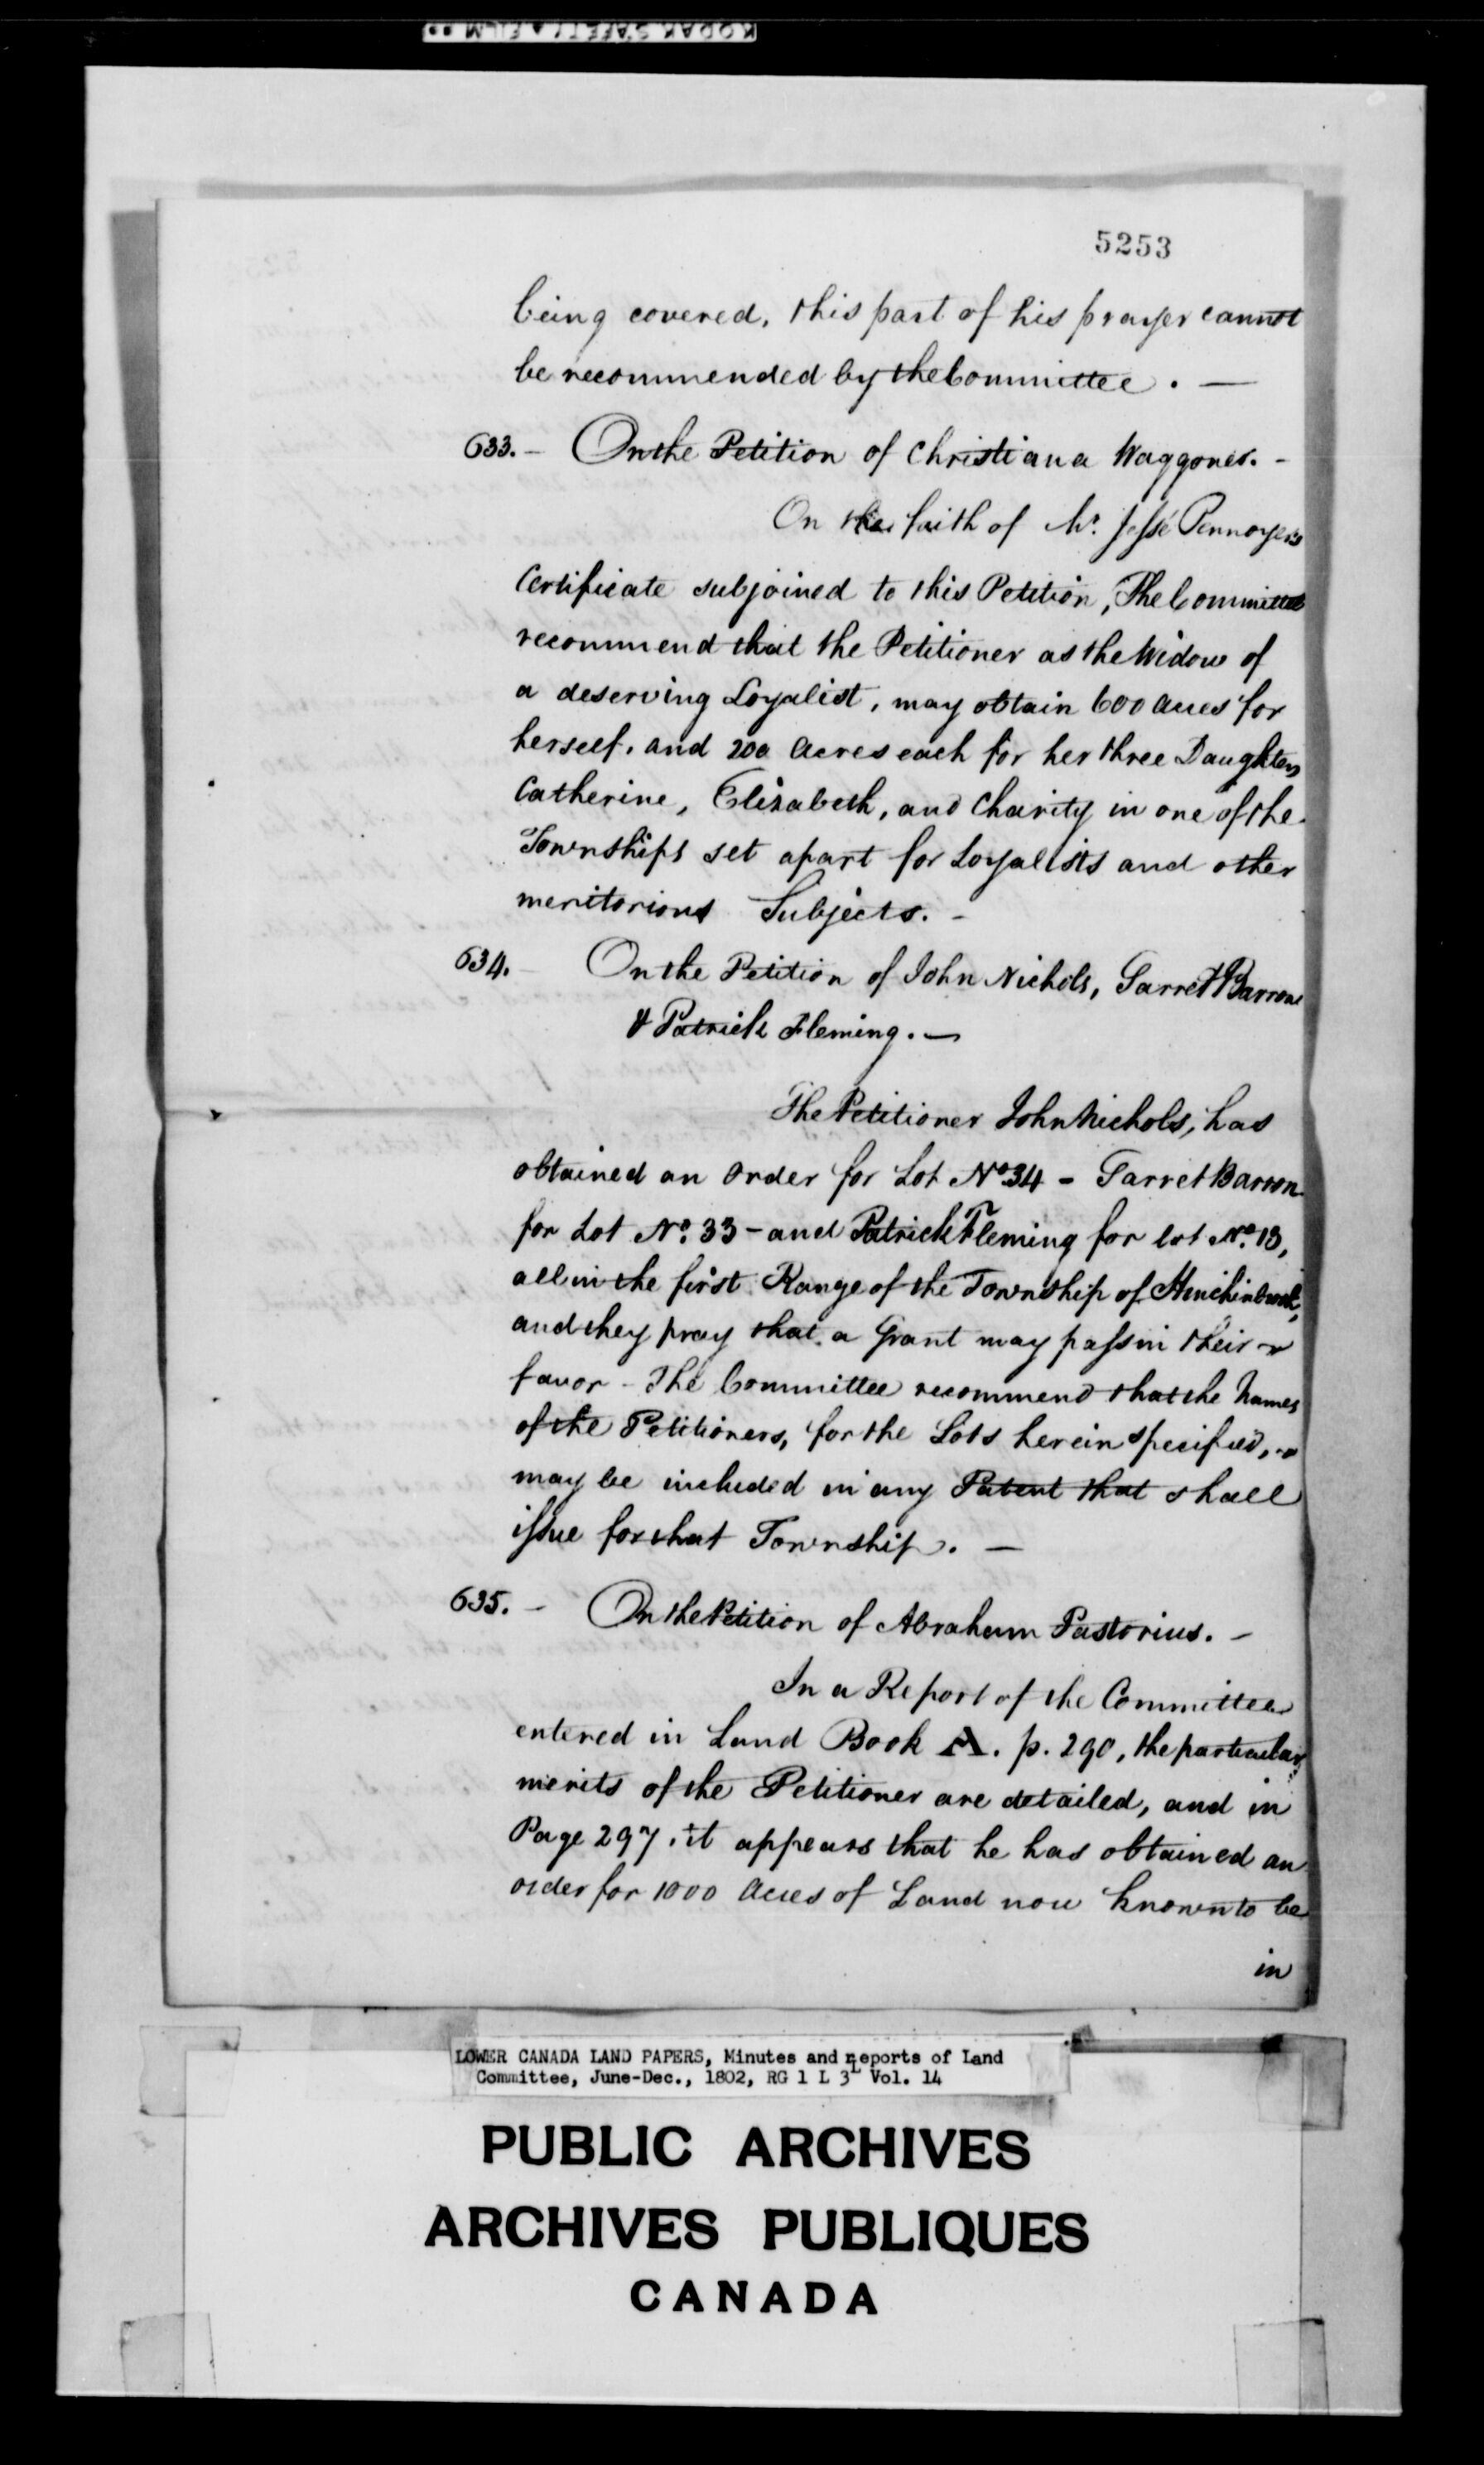 KODAK SAFETY FILM
5253
being covered, this part of his prayer cannot
be recommended by the Committee. —
633. - On the Petition of Christiana Waggoner. -
On the faith of Mr. Jesse Pennoyer's
Certificate subjoined to this Petition, The Committee
recommend that the Petitioner as the Widow of
a deserving Loyalist, may obtain 600 Acres for
herself, and 200 Acres each for her three Daughters
Catherine, Elizabeth, and Charity in one of the
Townships set apart for Loyalists and other
meritorious Subjects. -
634. - On the Petition of John Nichols, Garret Barron
& Patrick Fleming. —
The Petitioner John Nichols, has
obtained an Order for Lot No. 34 - Garret Barron
for Lot No. 33 - and Patrick Fleming for lot No. 13,
all in the first Range of the Township of Hinchinbrook,
and they pray that a Grant may pass in their
favor - The Committee recommend that the Names
of the Petitioners, for the Lots herein specified,
may be included in any Patent that shall
issue for that Township. —
635. - On the Petition of Abraham Pastorius. -
In a Report of the Committee
entered in Land Book A. p. 290, the particular
merits of the Petitioner are detailed, and in
Page 297. it appears that he has obtained an
order for 1000 Acres of Land now known to be
in
LOWER CANADA LAND PAPERS, Minutes and Reports of Land
Committee, June-Dec., 1802, RG 1 L 3L Vol. 14
PUBLIC ARCHIVES
ARCHIVES PUBLIQUES
CANADA